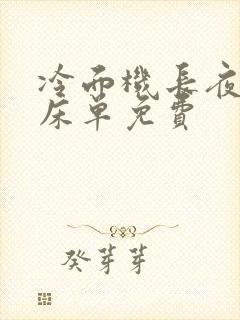 冷面機長夜
床單免費
癸芽芽